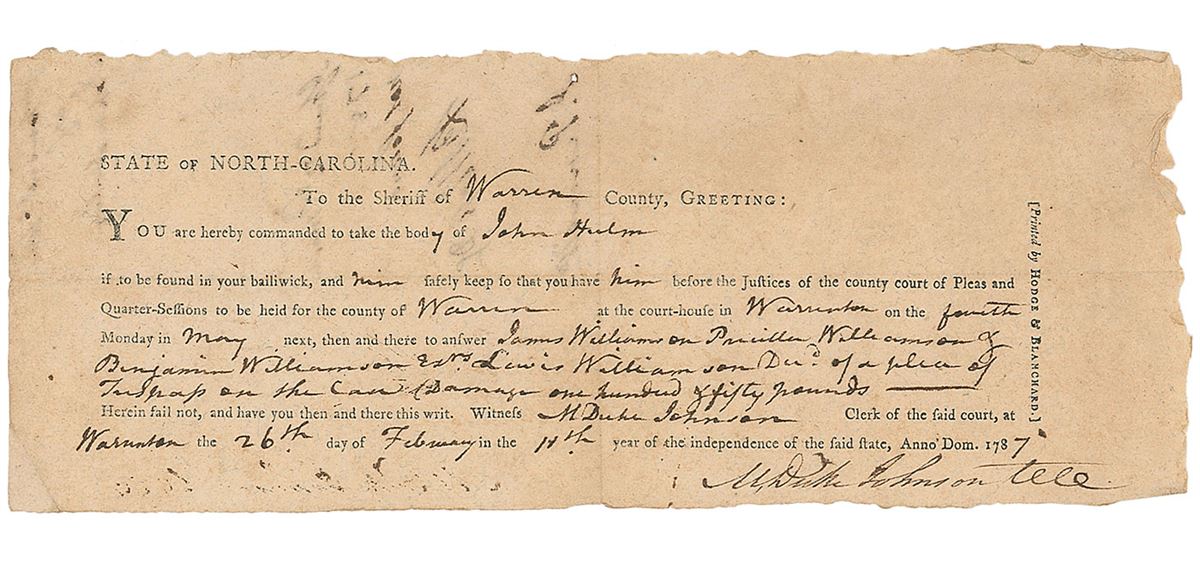 STATE OF NORTH-CAROLINA.
To the Sheriff of Warren County, GREETING:
YOU are hereby commanded to take the body of John Hulm
if to be found in your bailiwick, and him ſafely keep ſo that you have him before the Juſtices of the county court of Pleas and
Quarter-Seſſions to be held for the county of Warren at the court-houſe in Warrenton on the fourth
Monday in May next, then and there to anſwer James Williamson Pricilla Williamson &
Benjamin Williamson Exrs Lewis Williamson Decd. of a plea of
Trespass on the Case Damage one hundred & fifty pounds
Herein fail not, and have you then and there this writ. Witneſs M Duke Johnson Clerk of the ſaid court, at
Warrenton the 26th day of February in the 11th year of the independence of the ſaid ſtate, Anno Dom. 1787
M, Duke Johnson
[Printed by HODGE & BLANCHARD.]